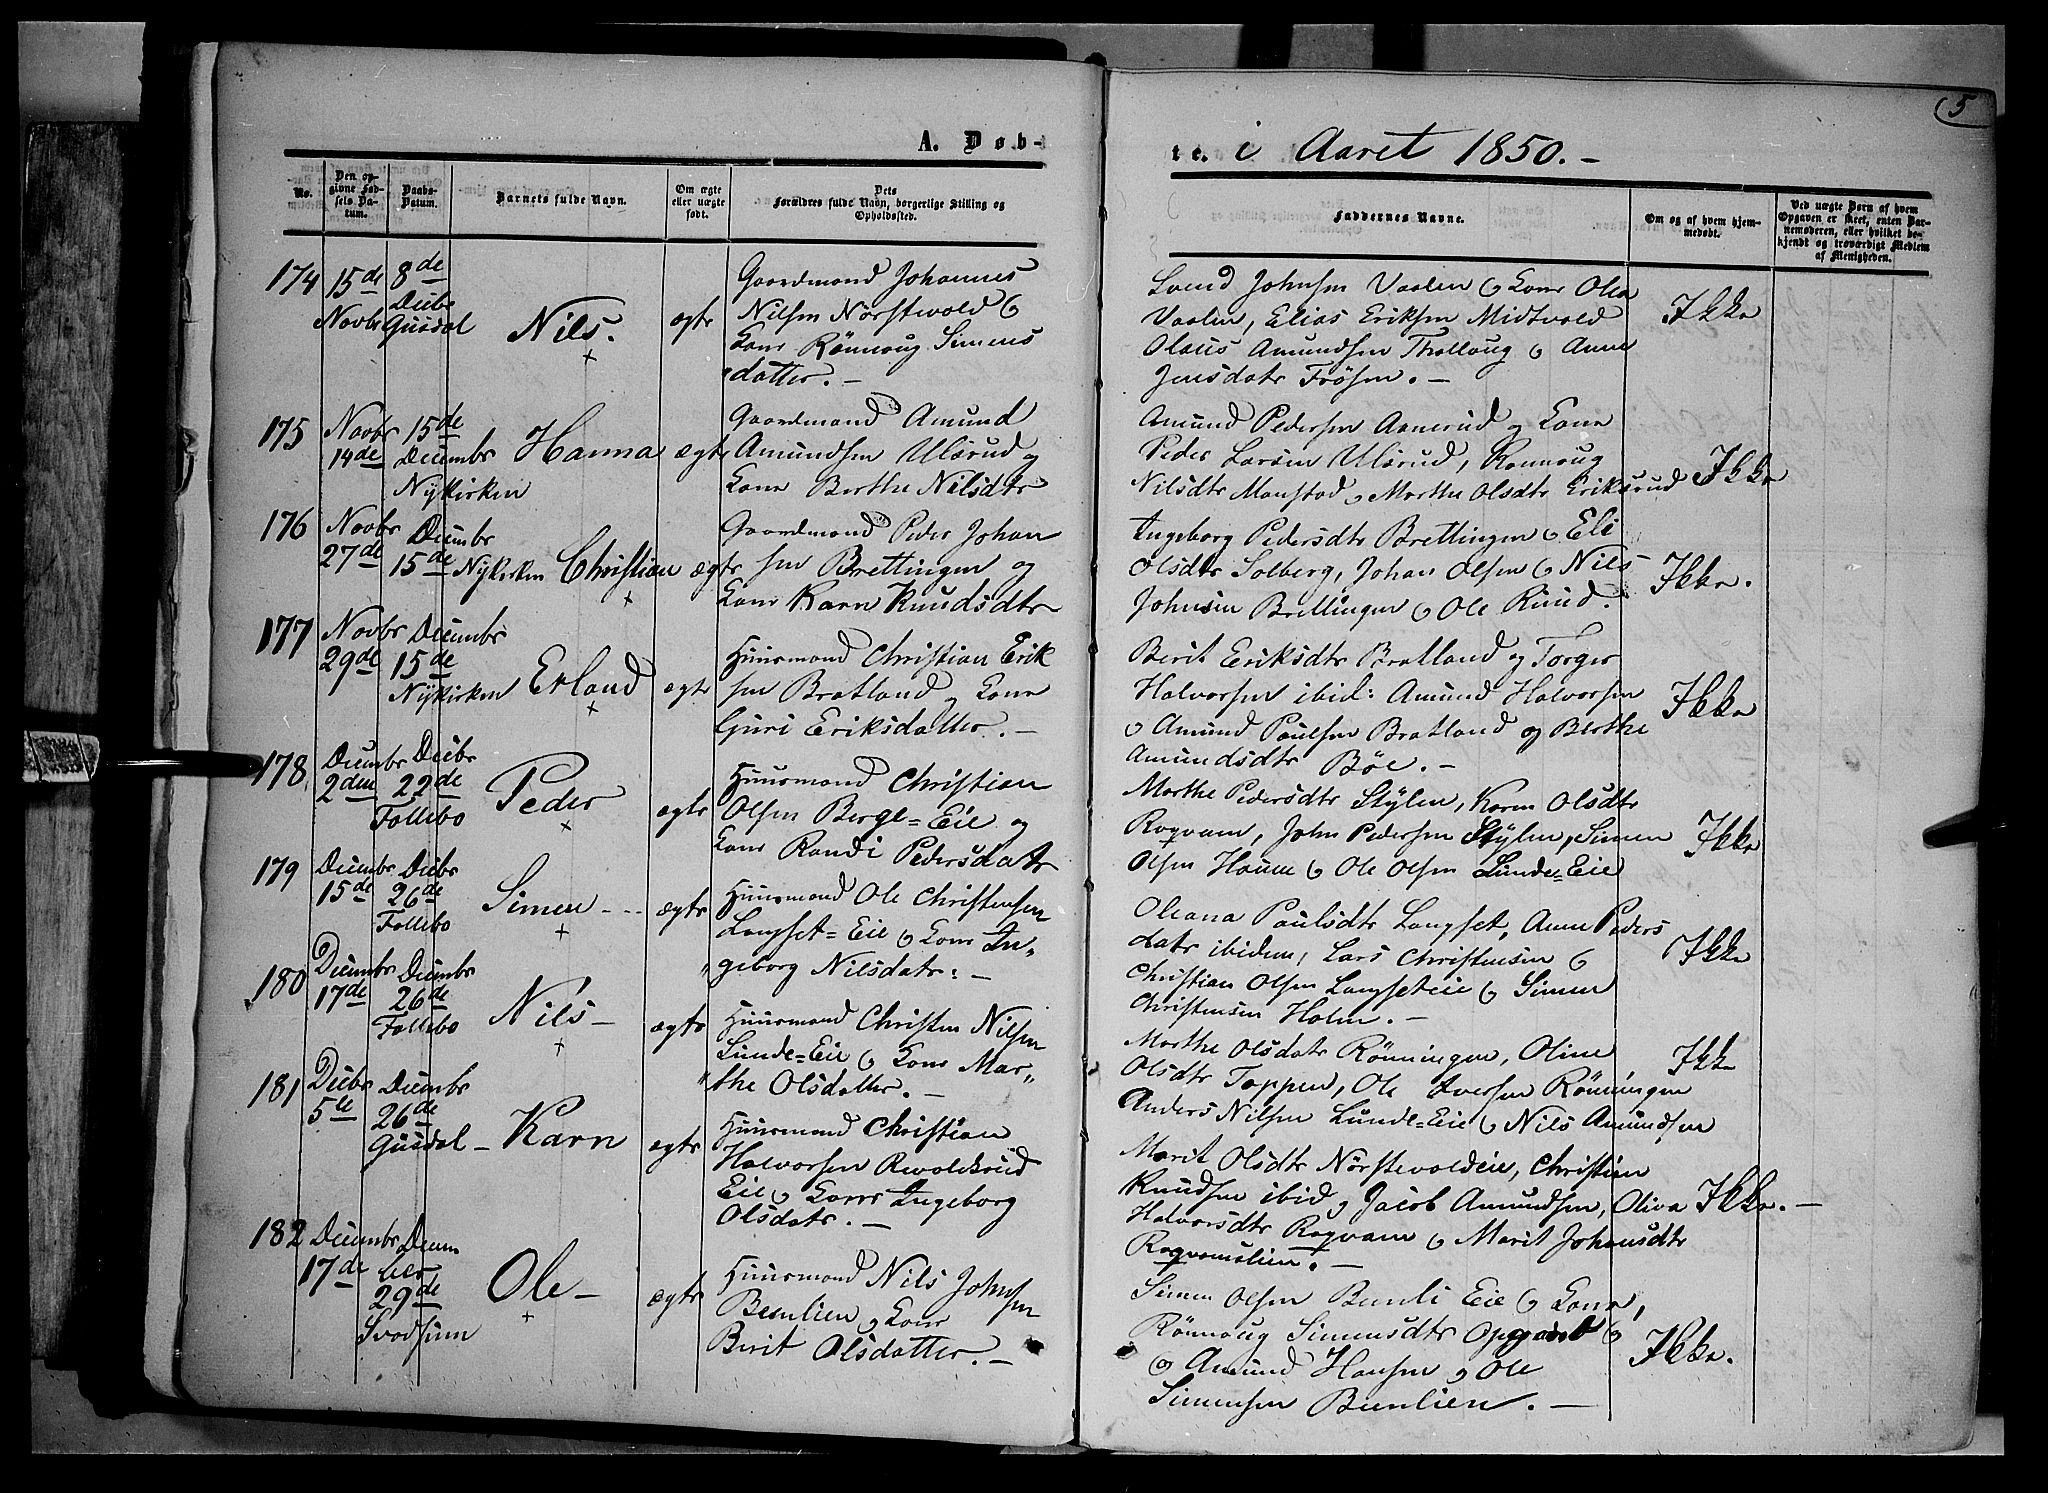 5
A. Døb-
te. i Aaret 1850. -
No.
Den op-
givne Fød-
sels Da-
tum.
Daabs-
Datum.
Barnets fulde Navn.
Om ægte
eller uægte
født.
Dets
Forældres fulde Navn, borgerlige Stilling og
Opholdssted.
Faddernes Navne.
Om og af hvem hjem-
medøbt.
Ved uægte Børn af hvem
Opgaven er skeet, enten Bar-
nemoderen, eller hvilket be-
kjendt og troværdigt Medlem
af Menigheden.
174 15de Novbr
8de Decbr Gusdal
Nils.
ægte
Gaardmand Johannes
Nilsen Nørstevold &
Kone Rønnoug Simens
datter. -
Svend Johnsen Vaalen & Kone Olea
Vaalen, Elias Eriksen Midtvold
Olaus Amundsen Thallaug & Anne
Jensdatr Frøsen. -
Ikke
175 Novbr 14de
15de Decembr Nykirken
Hanna
ægte
Gaardmand Amund
Amundsen Ulsrud og
Kone Berthe Nilsdtr
Amund Pedersen Aanerud og Kone
Peder Larsen Ulsrud, Rønnoug
Nilsdtr Manstad & Marthe Olsdtr Eriksrud
Ikke
176 Novbr 27de
Decembr 15de Nykirken
Christian
ægte
Gaardmand Peder Johan
sen Brettingen og
Kone Karn Knudsdtr
Ingeborg Pedersdtr Brettingen & Eli
Olsdtr Solberg, Johan Olsen & Nils
Johnsen Brettingen & Ole Ruud.
Ikke.
177 Novbr 29de
Decembr 15de Nykirken
Erland
ægte
Huusmand Christian Erik
sen Bratland og Kone
Guri Eriksdatter. -
Berit Eriksdtr Bratland og Torger
Halvorsen ibid: Amund Halvorsen
& Amund Paulsen Bratland og Berthe
Amundsdtr Bøe. -
Ikke
178 Decembr 2den
Decbr 22de Follebo
Peder
ægte
Huusmand Christian
Olsen Berge=Eie og
Kone Randi Pedersdatr
Marthe Pedersdtr Stylen, Karen Olsdtr
Rogvam, John Pedersen Stylen, Simen
Olsen Haune & Ole Olsen Lunde=Eie
Ikke
179 Decembr 15de
Decbr 26de Follebo
Simen - - -
ægte
Huusmand Ole Christensen
Langset=Eie & Kone In„
„geborg Nilsdatr: -
Oleana Paulsdtr Langset, Anne Peders
datr ibidem, Lars Christensen &
Christian Olsen Langseteie & Simen
Christensen Holm. -
Ikke
180 Decembr 17de
Decembr 26de Follebo
Nils -
ægte
Huusmand Christen Nilsen
Lunde=Eie & Kone Mar„
„the Olsdatter. -
Marthe Olsdatr Rønningen, Oline
Olsdtr Toppen, Ole Iversen Rønningen
Anders Nilsen Lunde=Eie & Nils Amundsen
Ikke
181 Decbr 5te
Decembr 26de Gusdal -
Karn
ægte
Huusmand Christian
Halvorsen Revoldsrud
Eie & Kone Ingeborg
Olsdatr. -
Marit Olsdtr Nørstevoldeie, Christian
Knudsen ibid & Jacob Amundsen, Oliva
Halvorsdtr Rogvam & Marit Johansdtr
Rogvamslien. -
Ikke. -
182 Decembr 17de
Decem
ber
29de
Svadsum
Ole -
ægte
Huusmand Nils Johnsen
Beenlien & Kone
Berit Olsdatter. -
Simen Olsen Beenli Eie & Kone,
Rønnoug Simensdtr Opgaard &
& Amund Hansen & Ole
Simensen Beenlien. -
Ikke.